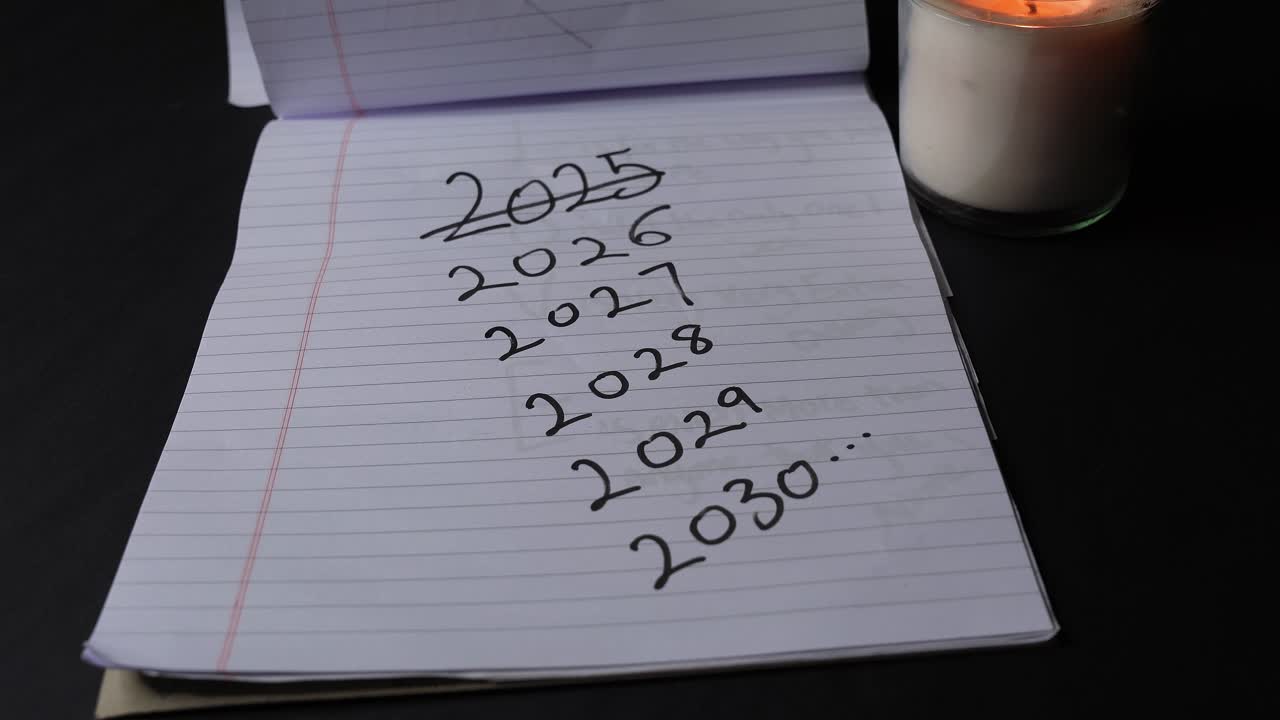 2025
2026
2027
2028
2029
2030...